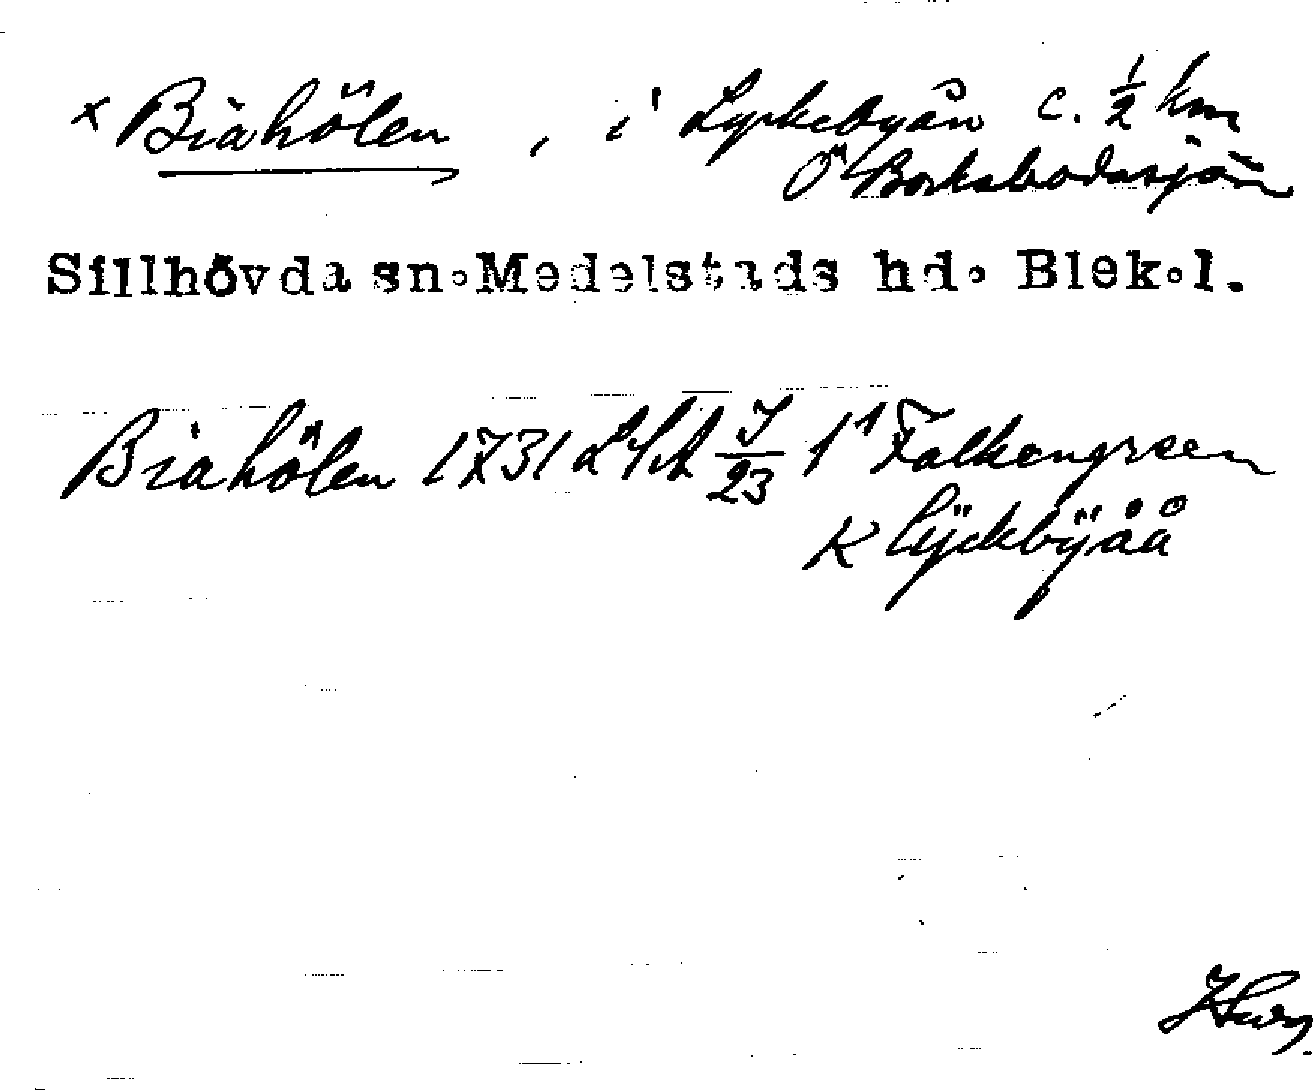 × Biahölen, i Lyckebyån c. ½ km
Ö Borksbodasjön
Sillhövda sn. Medelstads hd. Blek.l.
Biahölen 1731 LSA J/23 1¹ Falkengreen
K lÿckbÿåå